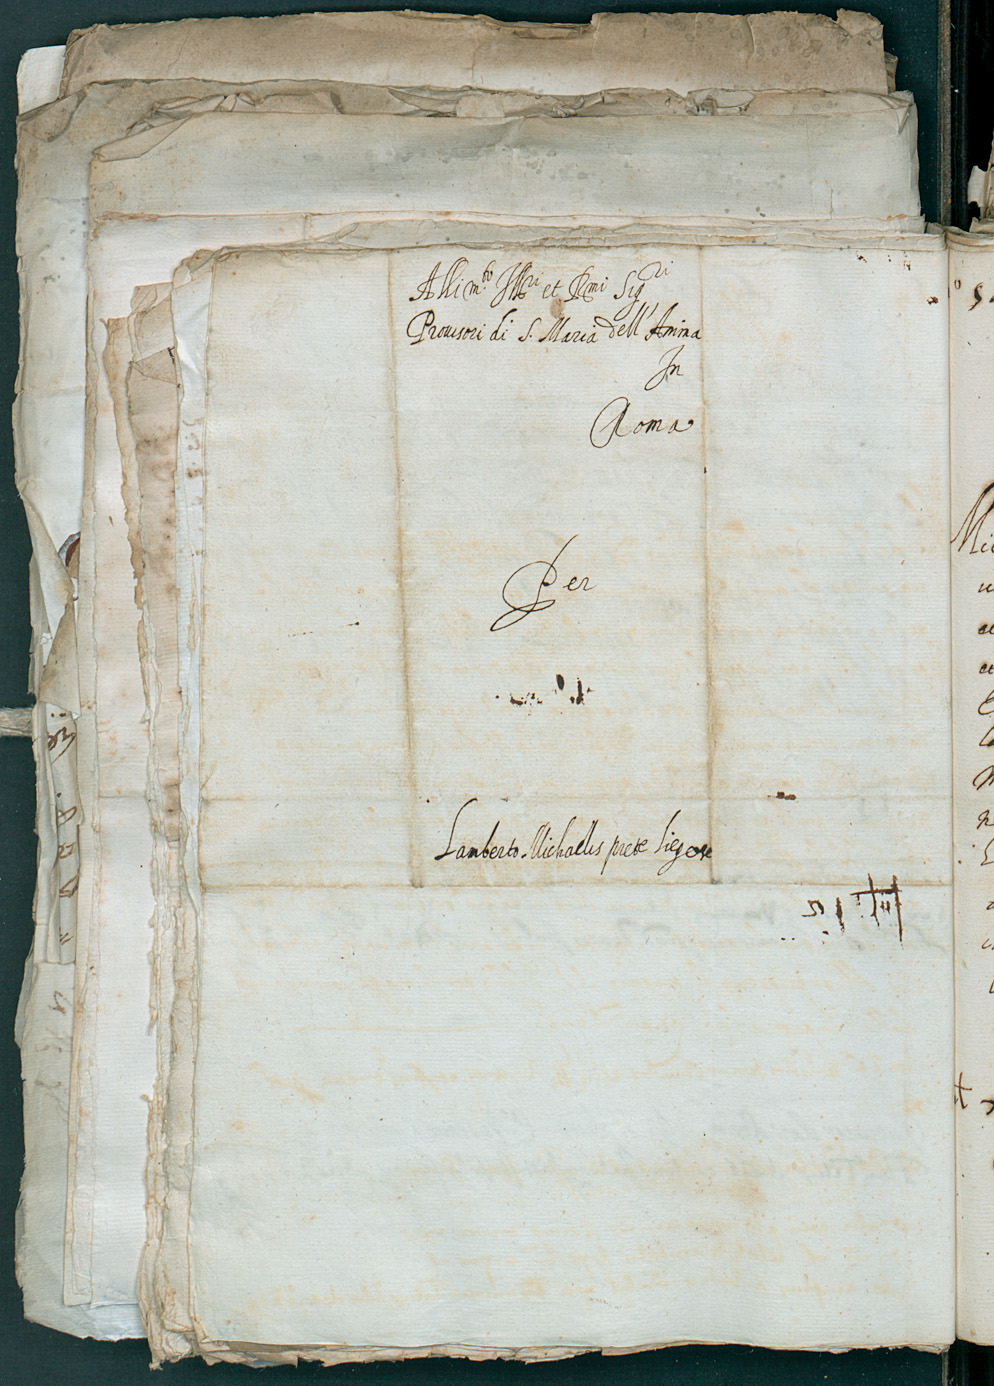 Alli m.to Ill.ri et R.mi Sig.ri
Provisori di S. Maria dell'Anima
In
Roma
Per
Lamberto Michaelis prete Liegese